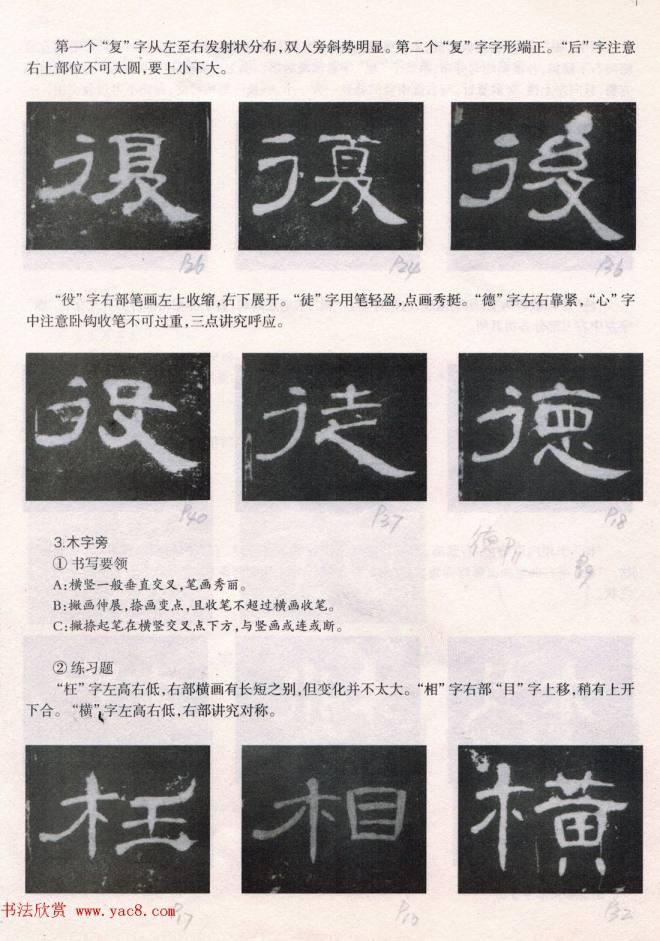 第一个“复”字从左至右发射状分布,双人旁斜势明显。第二个“复”字字形端正。“后”字注意
右上部位不可太圆,要上小下大。
復 復 後
P26 P24 P36
“役”字右部笔画左上收缩,右下展开。“徒”字用笔轻盈,点画秀挺。“德”字左右靠紧，“心”字
中注意卧钩收笔不可过重,三点讲究呼应。
役 徒 德
P40 P37 P18
德P11
3.木字旁
①书写要领
A:横竖一般垂直交叉,笔画秀丽。
B:撇画伸展,捺画变点,且收笔不超过横画收笔。
C:撇捺起笔在横竖交叉点下方,与竖画或连或断。
②练习题
“枉”字左高右低,右部横画有长短之别,但变化并不太大。“相”字右部“目”字上移,稍有上开
下合。“横”字左高右低,右部讲究对称。
枉 相 橫
书法欣赏 www.yac8.com P17 P10 P32